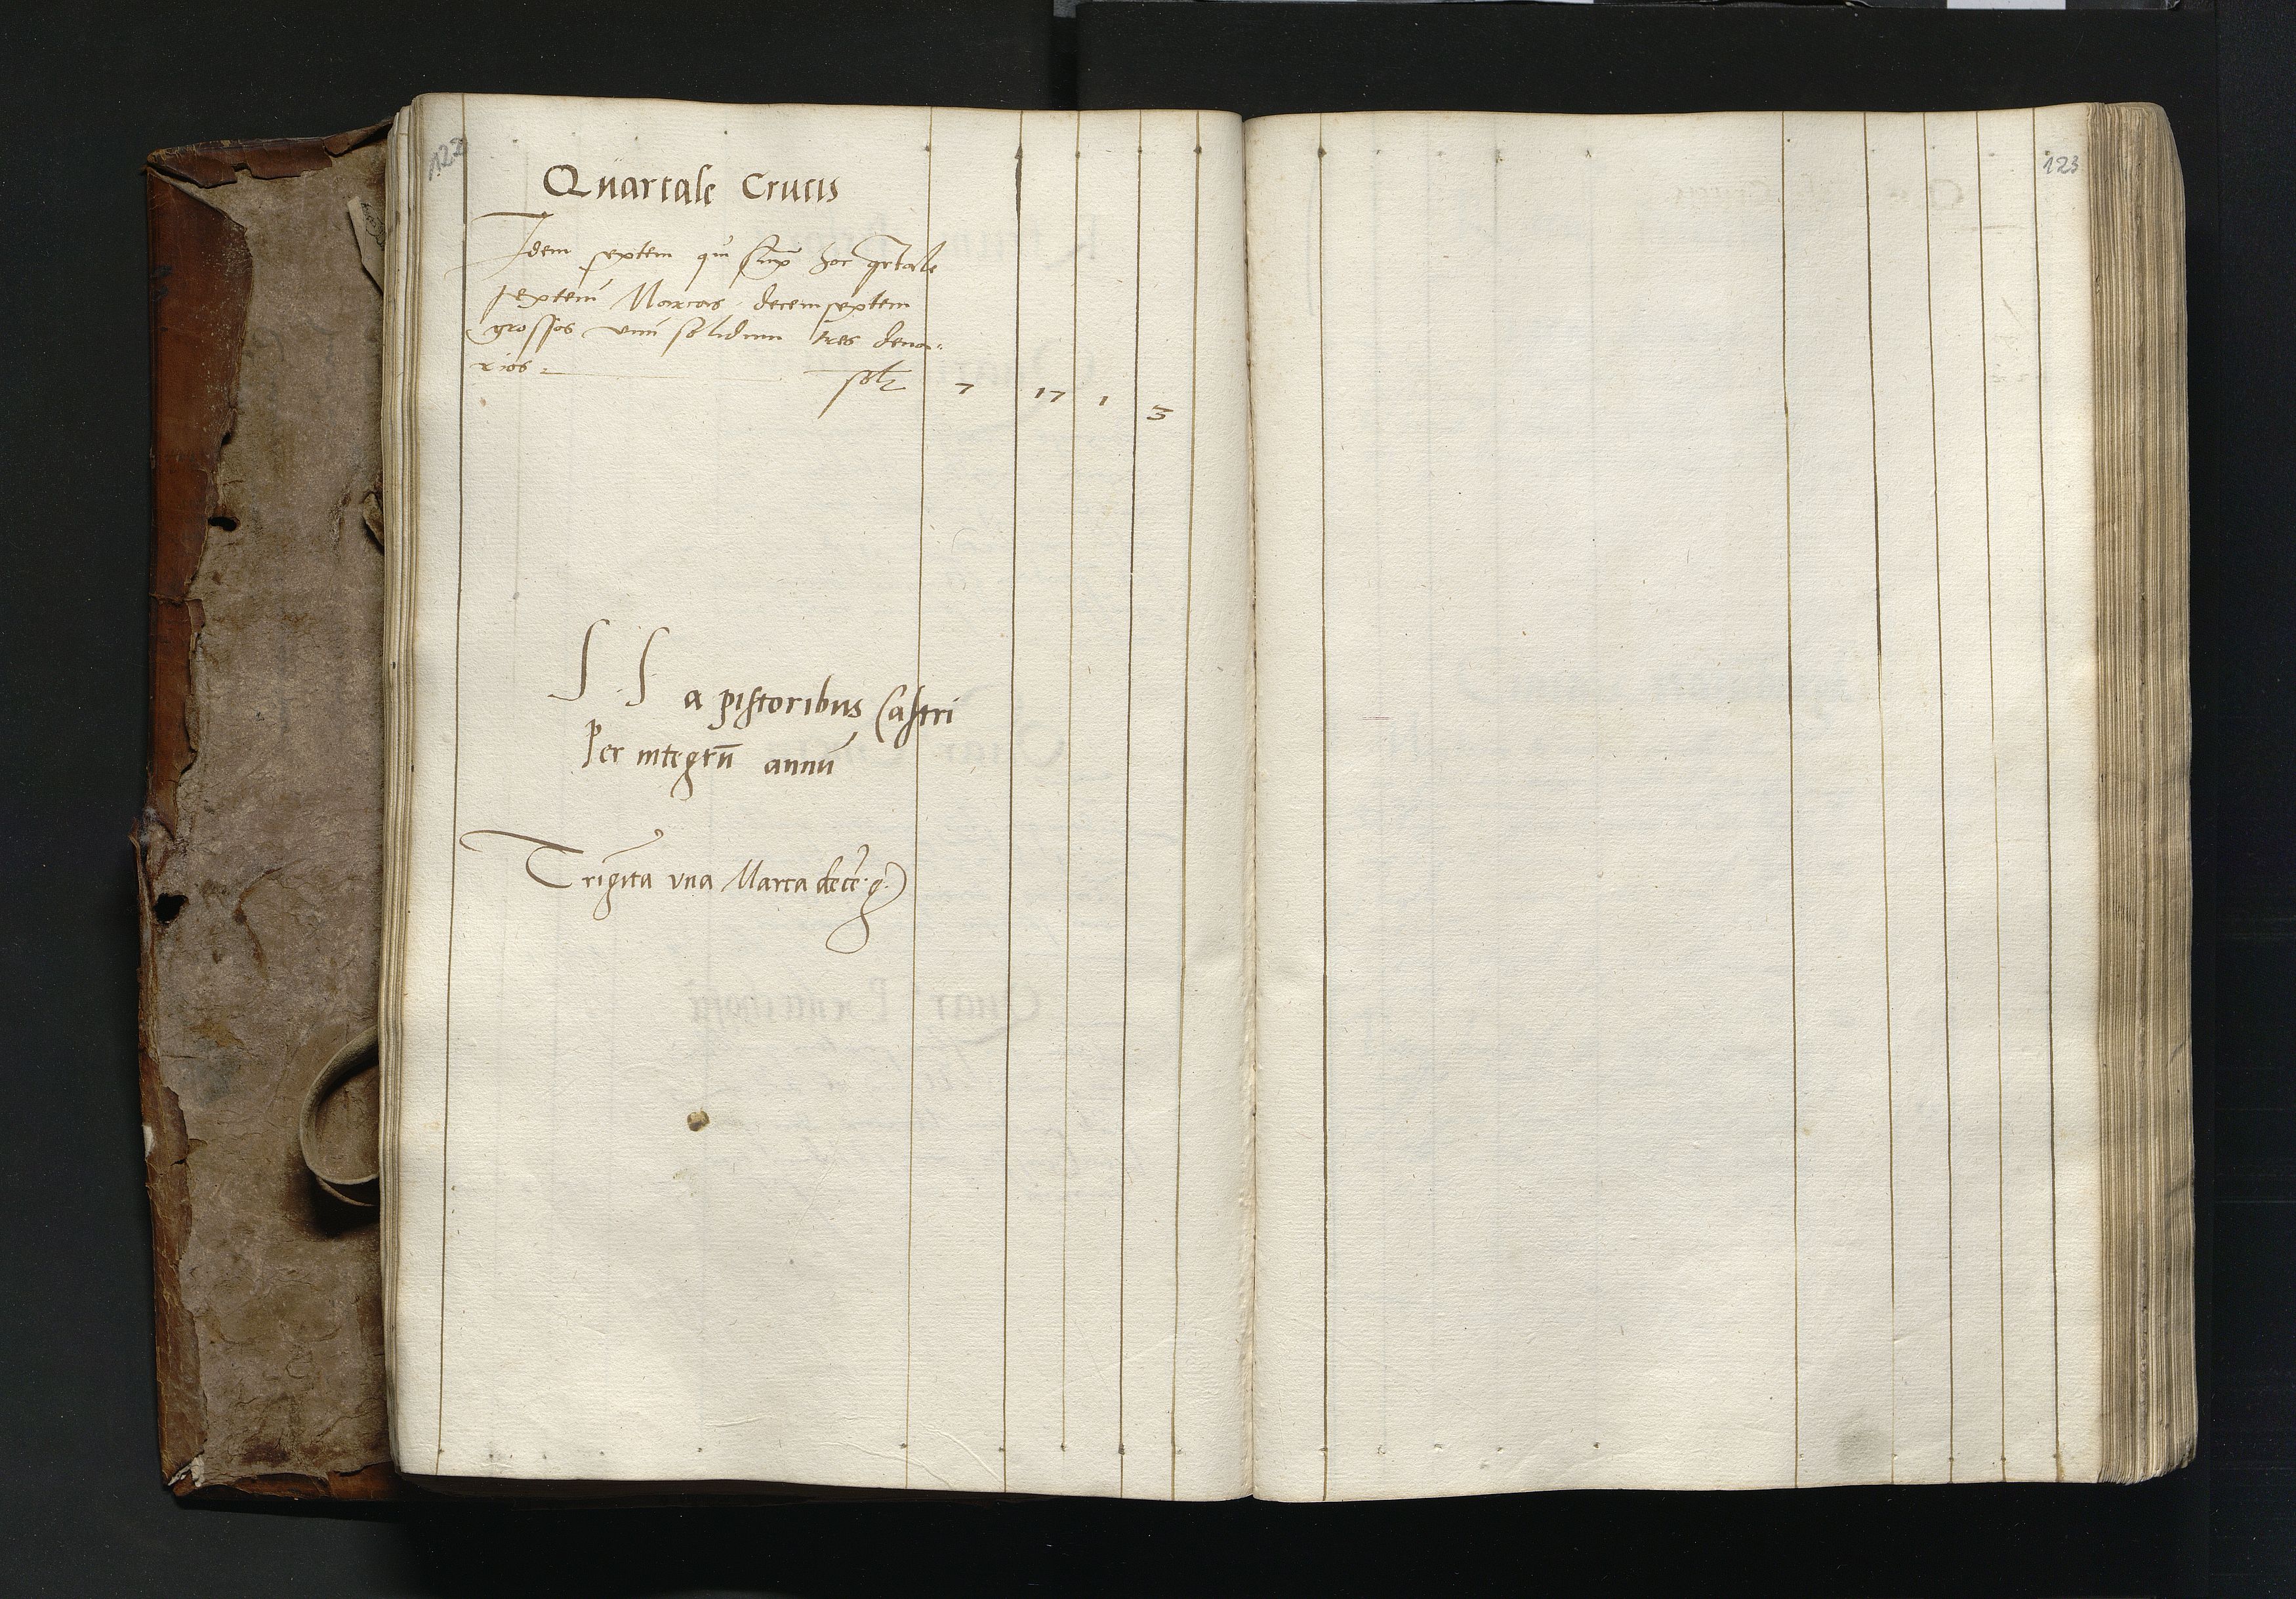 122
Quartale Crucis
Idem septem qui supra hoc qrtale
septem Marcas decemseptem
grossos vnū solidum tres dena:
rios
7 17 1 3
S S a pistoribus Castri
Per integrū annū
Trigīta vna Marca decē g
123